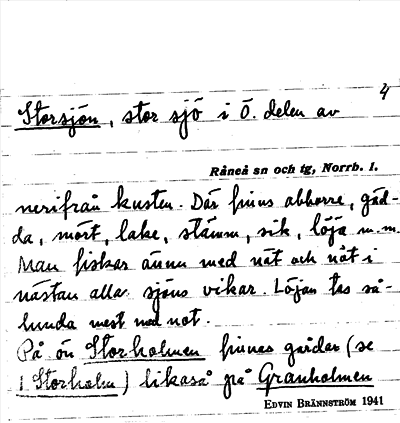 4
Storsjön, stor sjö i Ö. delen av
Råneå sn och tg, Norrb. l.
nerifrån kusten. Där finns abborre, gäd-
da, mört, lake, stämm, sik, löja m.m.
Man fiskar ännu med nät och nöt i
nästan alla sjöns vikar. Löjan tas så-
lunda mest med not.
På ön Storholmen finnes gårdar (se
1 Storholm) likaså på Granholmen
EDVIN BRÄNNSTRÖM 1941